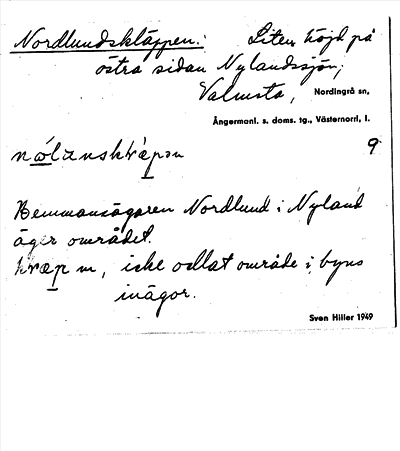 Nordlundskläppen: Liten höjd på
östra sidan Nylandssjön;
Valmsta, Nordingrå sn,
Ångermanl. s. doms. tg., Västernorrl, l.
9
Hemmansägaren Nordlund i Nyland
äger området.
m, icke odlat område i byns
inägor.
Sven Hiller 1949